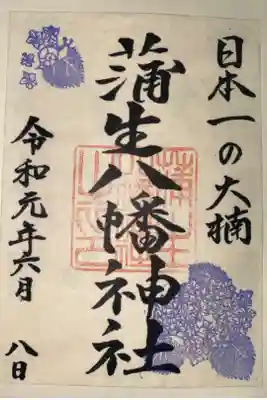 日本一の大楠
蒲生八幡神社
令和元年六月八日